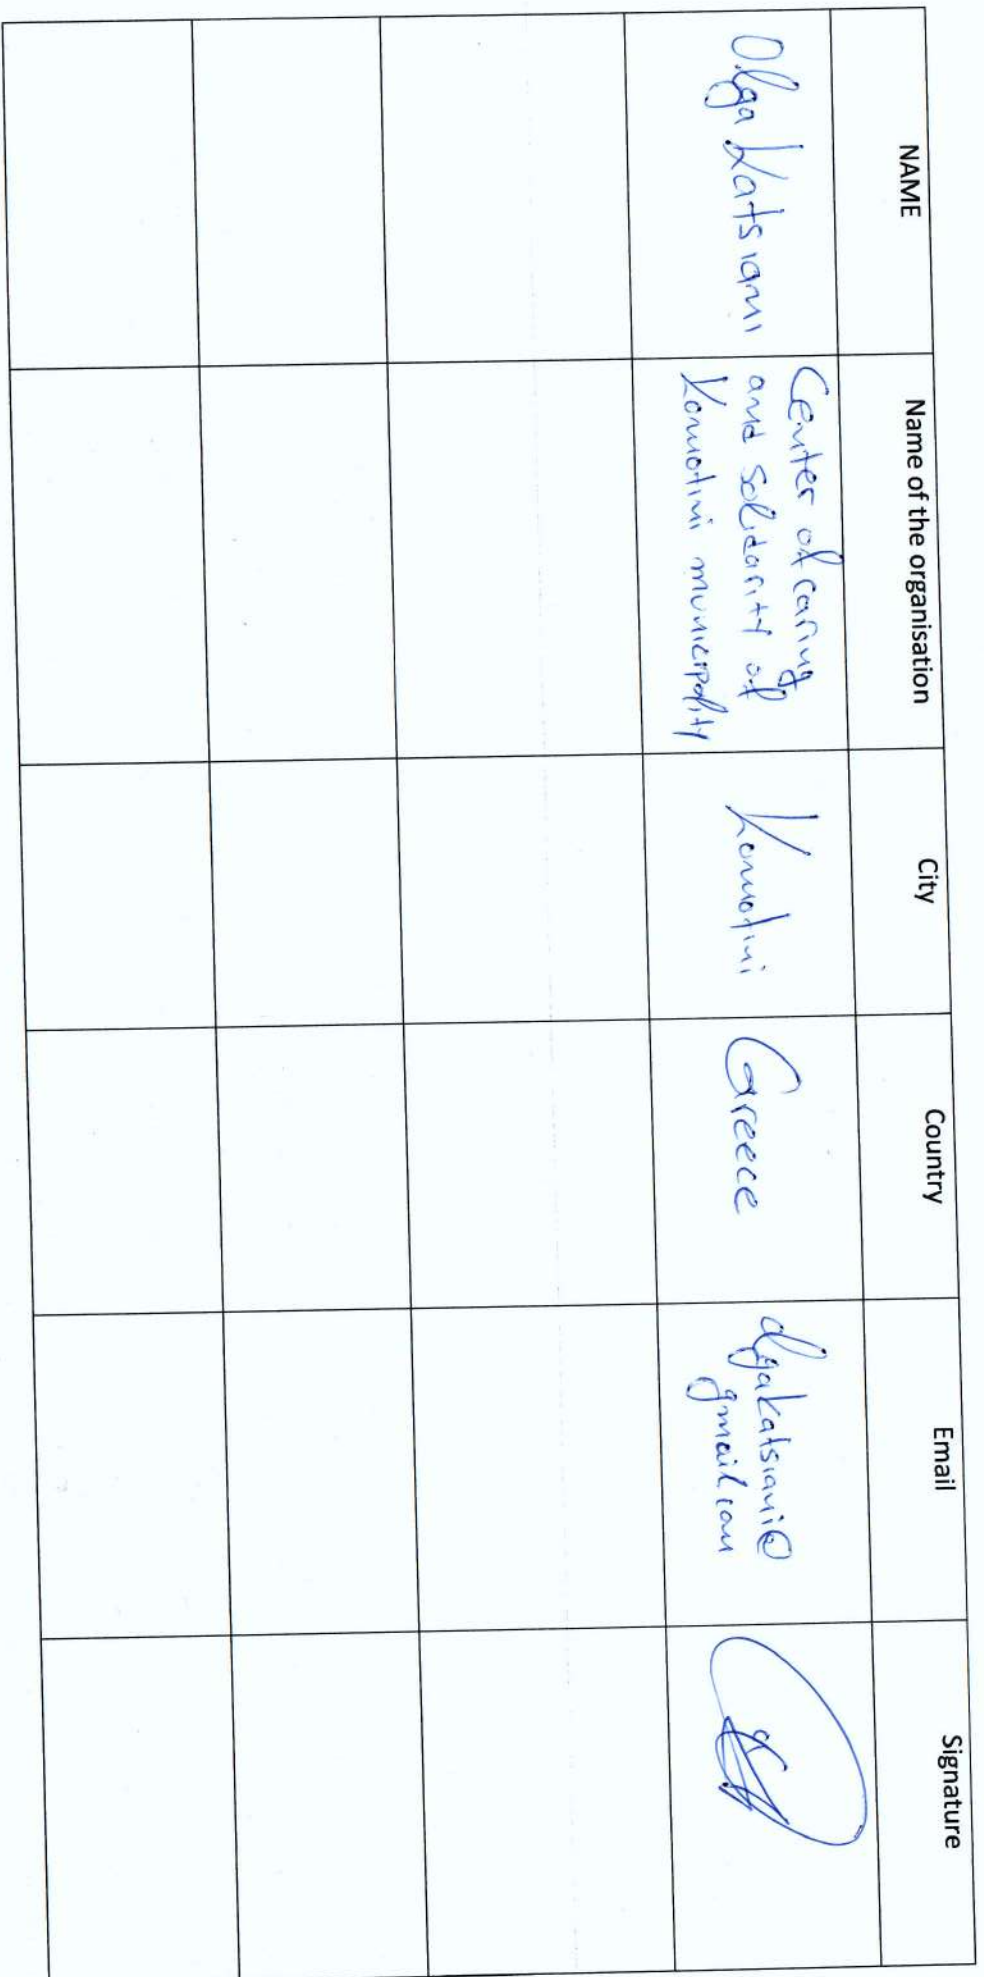 NAME
Name of the organisation
City
Country
Email
Signature
Olga Katsiami
Center of caring
and solidarity of
Komotini municipality
Komotini
Greece
olgakatsiami@
gmail.com